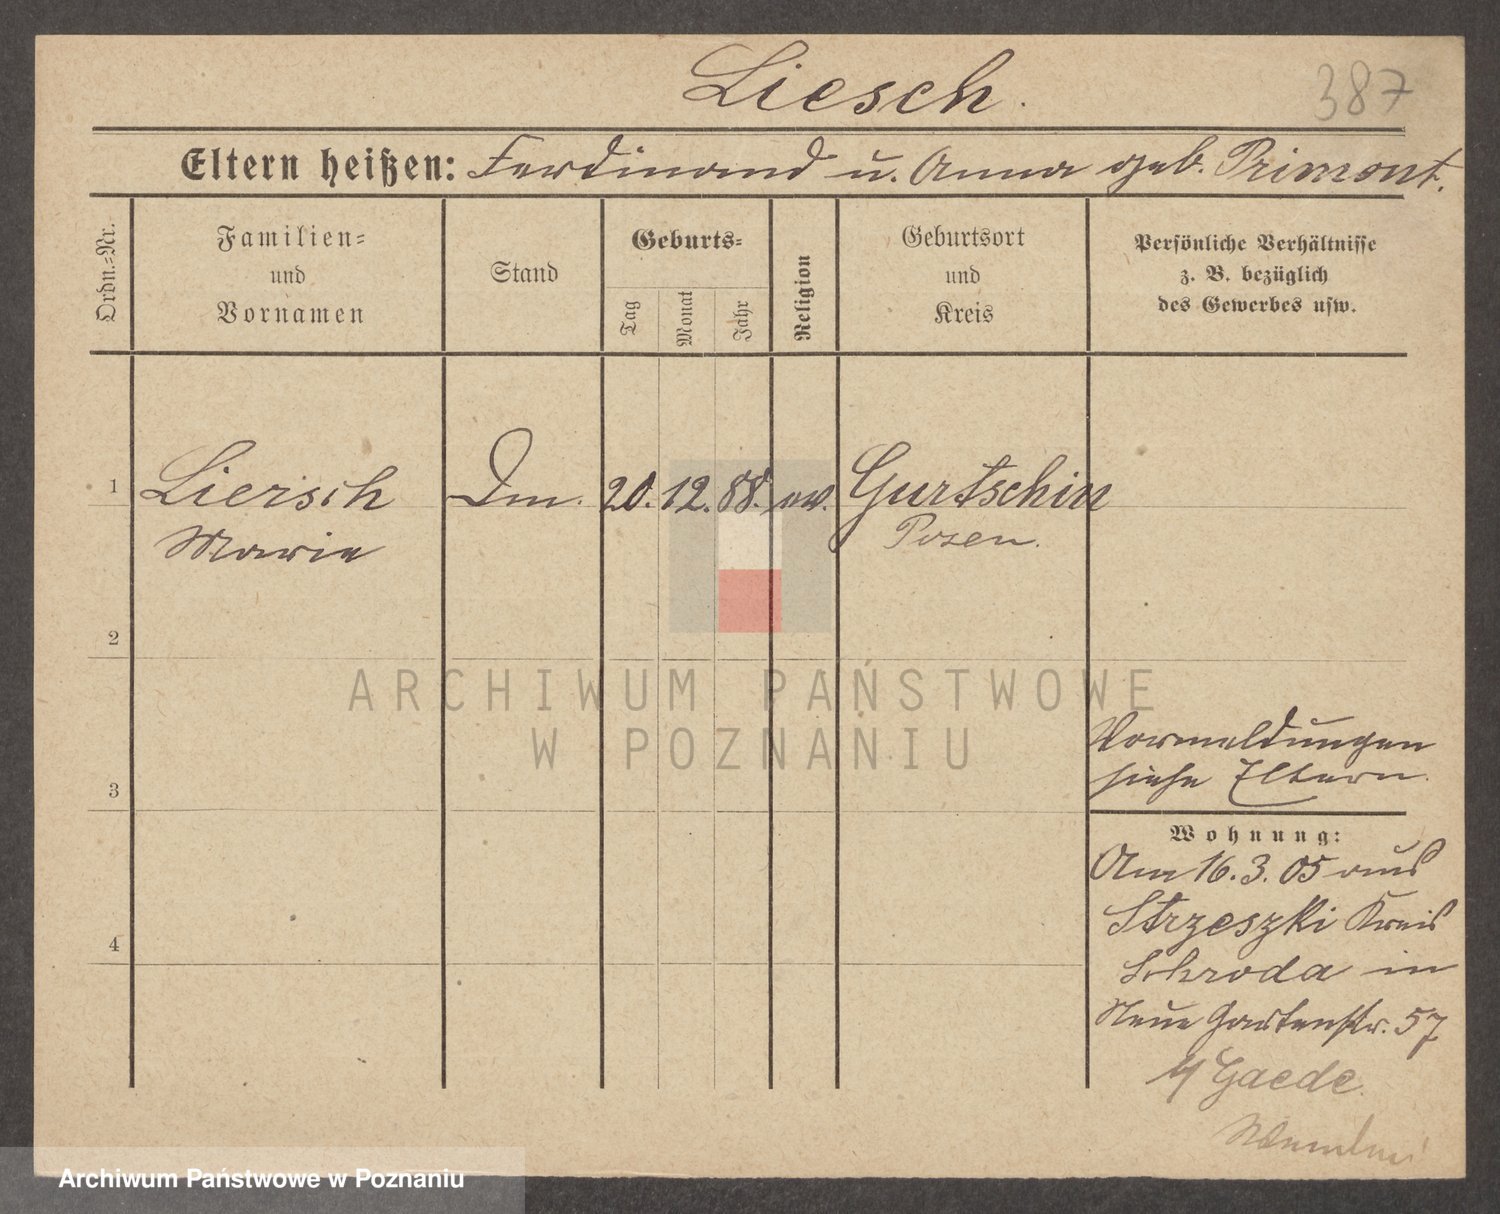 Liesch.
387
Eltern heißen: Ferdinand u. Anna geb. Primont.
Ordn.-Nr.
Familien-
und
Vornamen
Stand
Geburts-
Tag
Monat
Jahr
Religion
Geburtsort
und
Kreis
Persönliche Verhältnisse
z. B. bezüglich
des Gewerbes usw.
1
Liersch
Marie
Dm.
20. 12. 88. ev.
Gurtschin
Posen.
2
3
4
Vormeldungen
siehe Eltern.
Wohnung:
Am 16.3.05 aus
Strzeszki Kreis
Schroda in
Neue Gartenstr. 57
b/ Gaede.
ARCHIWUM PAŃSTWOWE
W POZNANIU
Archiwum Państwowe w Poznaniu